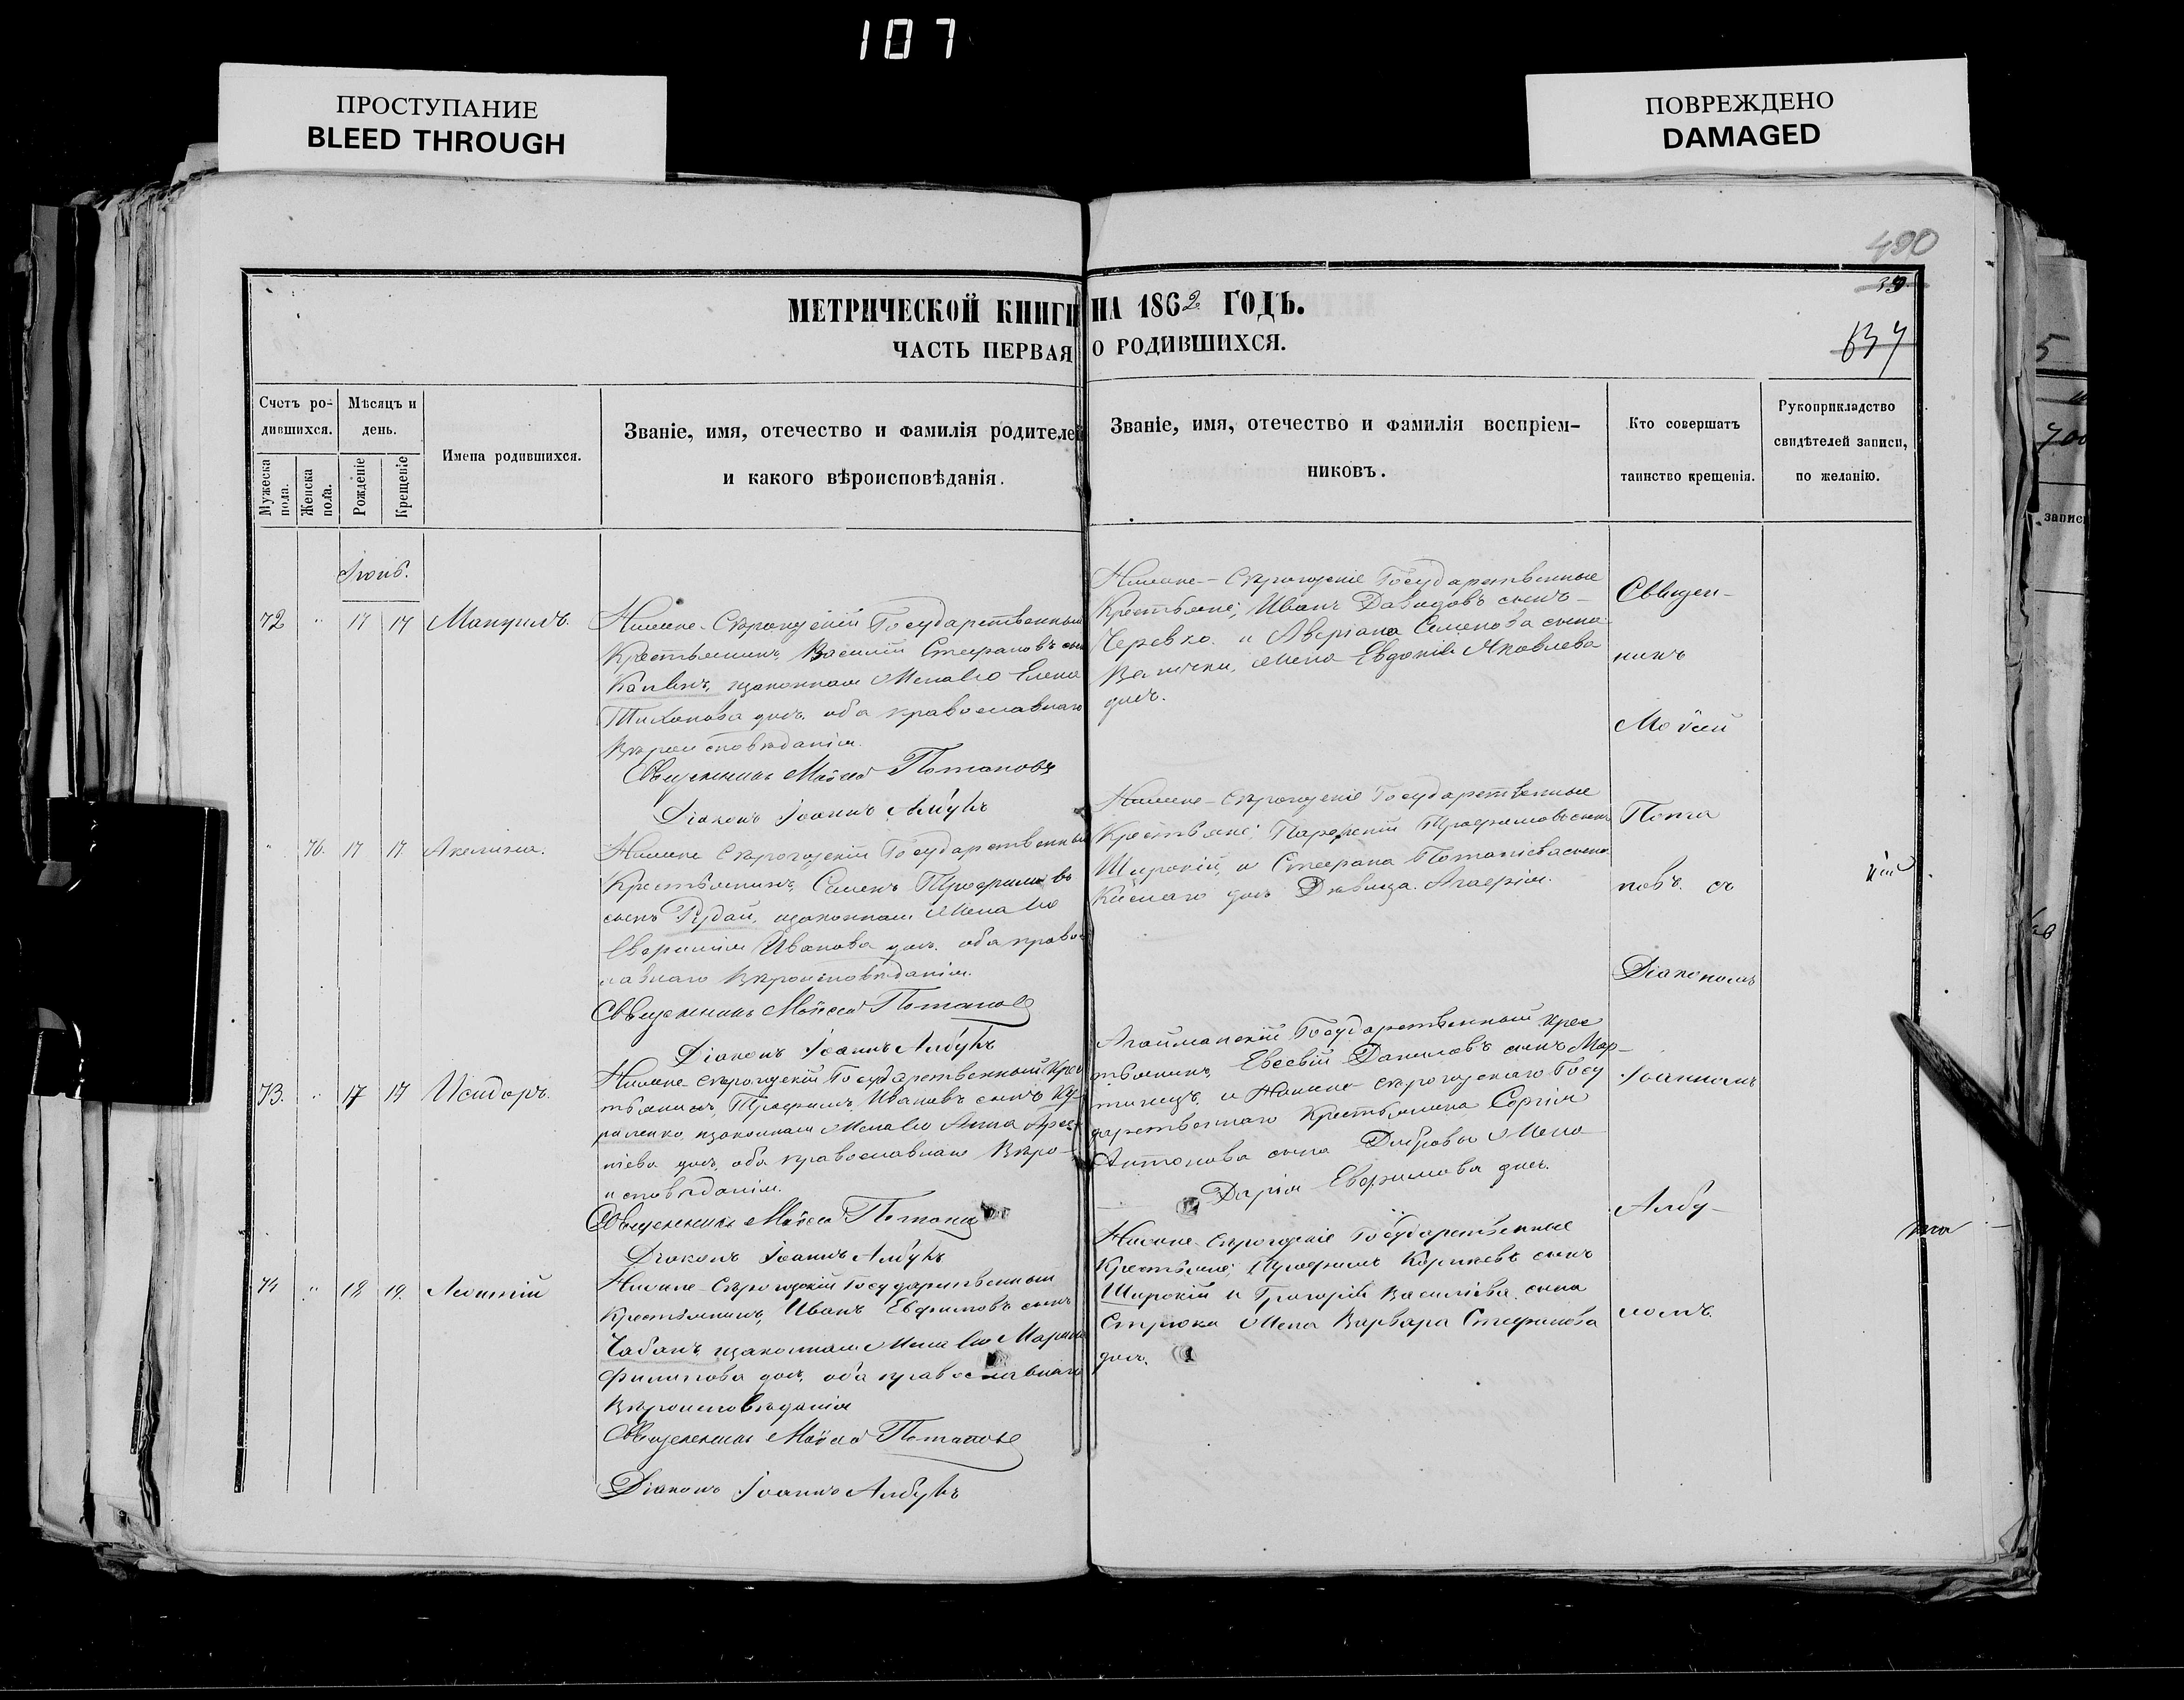 107
ПРОСТУПАНИЕ
BLEED THROUGH
ПОВРЕЖДЕНО
DAMAGED
490
39
637
МЕТРИЧЕСКОЙ КНИГИ НА 1862 ГОДЪ.
ЧАСТЬ ПЕРВАЯ О РОДИВШИХСЯ.
Счетъ ро-
дившихся.
Мужеска
пола.
Женска
пола.
Мѣсяцъ и
день.
Рожденіе
Крещеніе
Имена родившихся.
Званіе, имя, отечество и фамилія родителей
и какого вѣроисповѣданія.
Званіе, имя, отечество и фамилія воспріем-
никовъ.
Кто совершатъ
таинство крещенія.
Рукоприкладство
свидѣтелей записи,
по желанію.
Іюнь.
72 " 17 17 Мануилъ.
Нижне-Сѣрогозскій Государственный
Крестьянинъ, Василій Стефановъ сынъ
законная Жена его Елена
Тихонова дочь. оба православнаго
Вѣроисповѣданія.
Священникъ Мойсей Потаповъ
Діаконъ Іоаннъ Албулъ
Нижне-Сѣрогозскіе Государственные
Крестьяне; Иванъ Давидовъ сынъ-
Черевко. и Аверіана Семенова сына
Велички, Жена Евдокія Яковлева
дочь.
" 76. 17 17 Акелина.
Нижне Сѣрогозскій Государственный
Крестьянинъ, Семенъ Трофимовъ
сынъ Рудай, законная Жена его
Евфимія Иванова дочь. оба правос-
лавнаго Вѣроисповѣданія.
Священникъ Мойсей Потаповъ
Діаконъ Іоаннъ Албулъ
Нижне-Сѣрогозскіе Государственные
Крестьяне; Парфеній Трофимовъ сынъ
Широкій, и Стефана Потапіева сына
Кислаго дочь Дѣвица. Агафія.
73. " 17 17 Исидоръ.
Нижне Сѣрогозскій Государственный Крес
тьянинъ, Трофимъ Ивановъ сынъ
законная Жена его Анна
дочь, оба православнаго Вѣро-
исповѣданія.
Священникъ Мойсей Потаповъ
Діаконъ Іоаннъ Албулъ
Агайманскій Государственный Крес
тьянинъ, Евсевій Даниловъ сынъ Мар-
тинецъ. и Нижне-Сѣрогозскаго Госу
дарственнаго Крестьянина Сергія
Антонова сына Дибровы Жена
Дарія Евфимова дочь.
74 " 18 19. Леонтій
Нижне-Сѣрогозскій Государственный
Крестьянинъ, Иванъ Евфимовъ сынъ
Чабанъ законная Жена его Марина
Филипова дочь, оба православнаго
Вѣроисповѣданія
Священникъ Мойсей Потаповъ
Діаконъ Іоаннъ Албулъ
Нижне-Сѣрогозскіе Государственные
Крестьяне; Трофимъ Корніевъ сынъ
Широкій и Григорія Василіева сына
Стрюка Жена Варвара Стефанова
дочь.
Священ-
никъ
Мойсей
Пота
повъ. съ
Діакономъ
Іоанномъ
Албу-
ломъ.